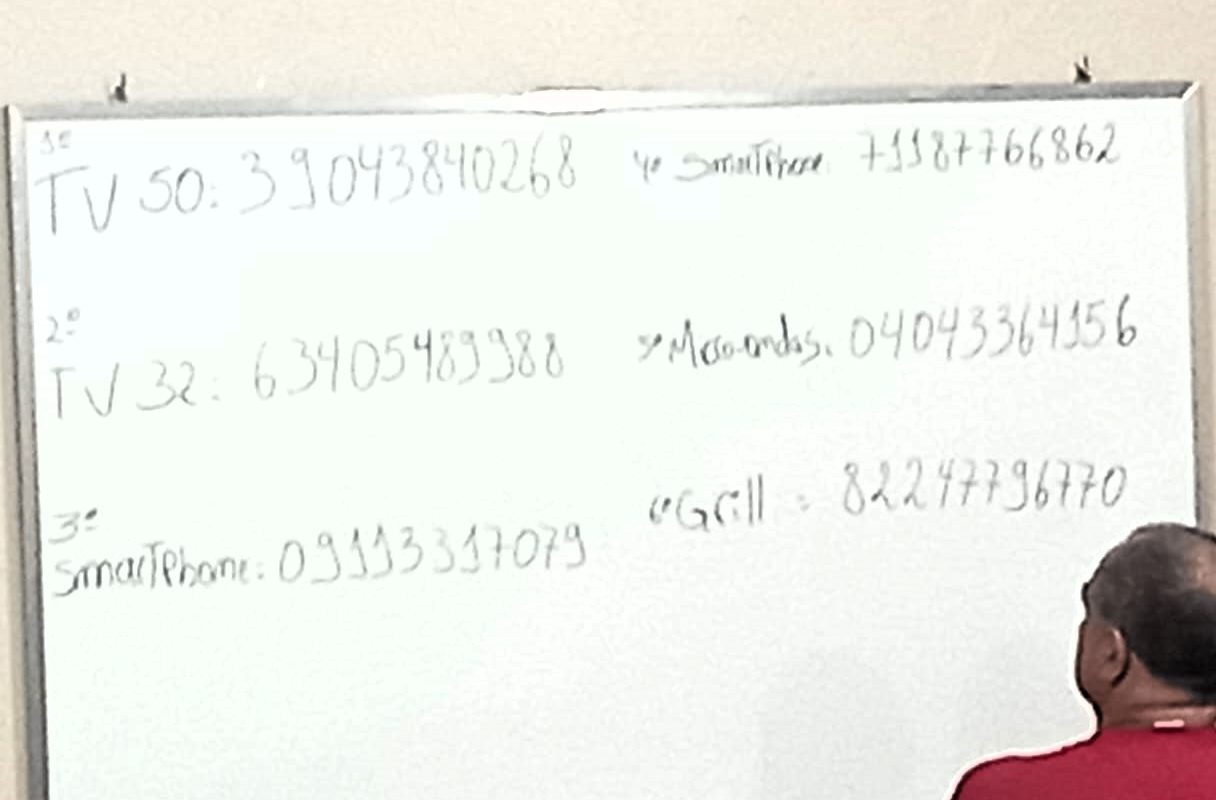 1º
TV 50: 39043840268
2º
TV 32: 63405489988
3º
SmarTphone: 09113317079
4º SmarTphone: 71187766862
5º Micro-ondas: 04043364156
6º Grill : 82247796770